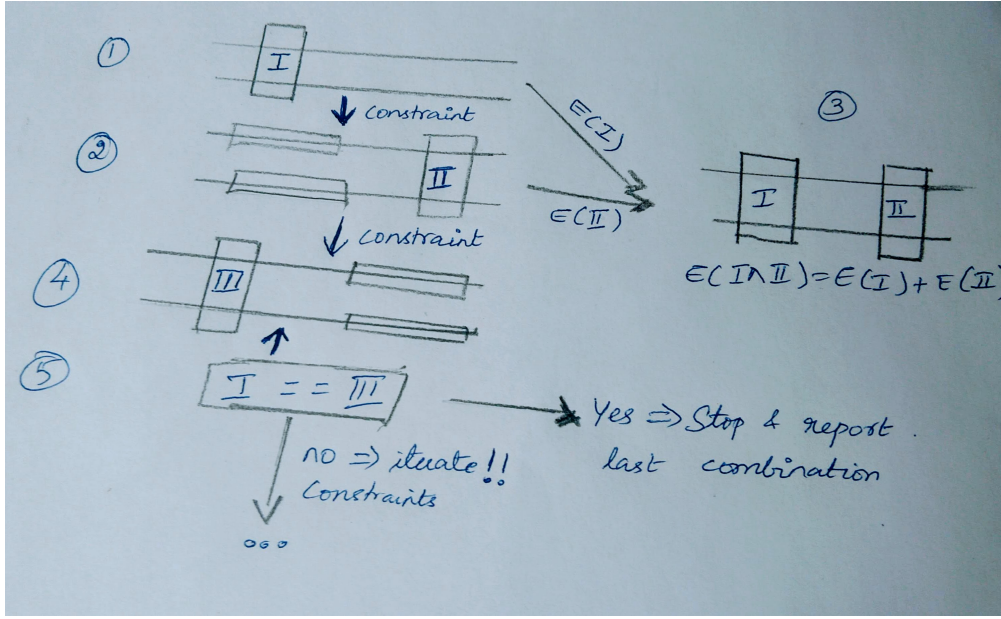 ①
I
constraint
②
II
E(I)
E(II)
③
I
II
E(I∧II)=E(I)+E(II)
constraint
④
III
⑤
I == III
Yes => Stop & report.
last combination
no => iterate!!
Constraints
...